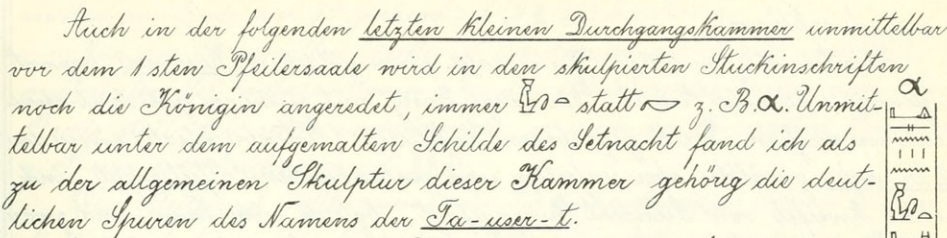 Auch in der folgenden letzten kleinen Durchgangskammer unmittelbar
vor dem 1sten Pfeilersaale wird in den skulpierten Stuckinschriften
noch die Königin angeredet, immer statt z. B. α. Unmit-
telbar unter dem aufgemalten Schilde des Setnacht fand ich als
zu der allgemeinen Skulptur dieser Kammer gehörig die deut-
lichen Spuren des Namens der Ta-user-t.
α